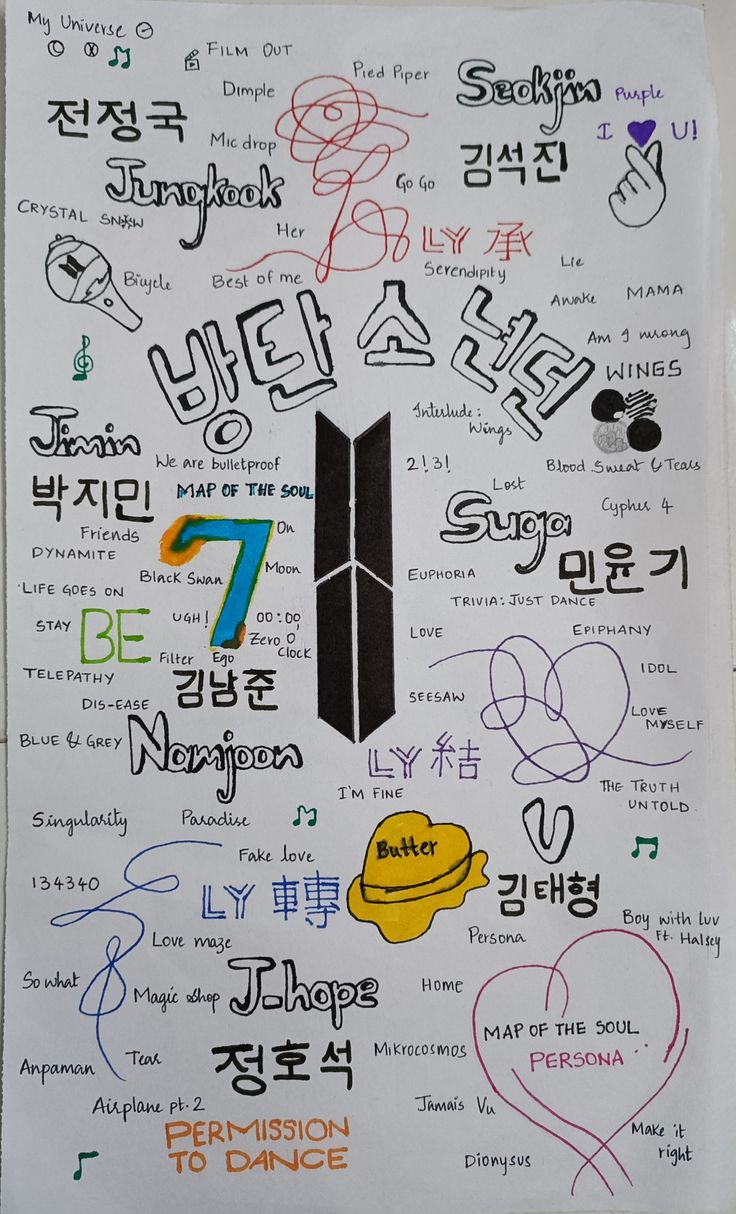 My Universe
FILM OUT
Pied Piper
Seokjin
Dimple
Purple
전정국
Mic drop
I U!
김석진
Jungkook
Go Go
CRYSTAL SNOW
Her
LY 承
Lie
Bicycle
Best of me
Serendipity
Awake
MAMA
Am I wrong
방탄소년던
WINGS
Jimin
Interlude:
Wings
We are bulletproof
2!3!
Blood Sweat & Tears
박지민
MAP OF THE SOUL
7
Lost
Cypher 4
Suga
Friends
On
DYNAMITE
민윤기
Black Swan
Moon
EUPHORIA
LIFE GOES ON
TRIVIA: JUST DANCE
STAY
BE
UGH!
00:00,
Zero O'
Clock
LOVE
EPIPHANY
Filter
Ego
TELEPATHY
김남준
IDOL
DIS-EASE
SEESAW
LOVE
MYSELF
BLUE & GREY
Namjoon
LY 結
I'M FINE
THE TRUTH
UNTOLD.
Singularity
Paradise
V
Fake love
Butter
134340
LY 轉
김태형
Boy with luv
Ft. Halsey
Love maze
Persona
So what
Magic shop
J-hope
Home
MAP OF THE SOUL
PERSONA
Anpaman
Tear
정호석
Mikrocosmos
Airplane pt. 2
Jamais Vu
PERMISSION
TO DANCE
Make it
right
Dionysus